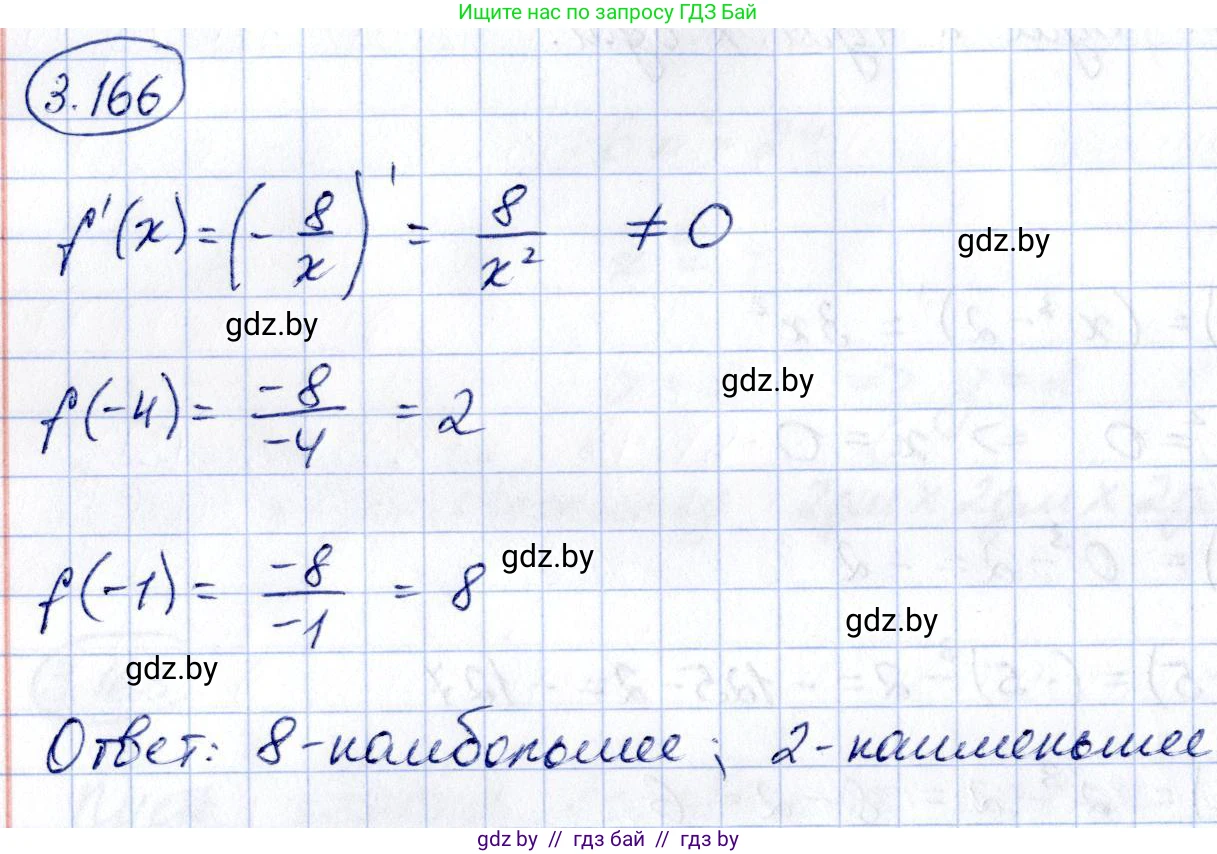 Ищите нас по запросу ГДЗ Бай
3.166
f'(x) = (- 8/x)' = 8/x² ≠ 0
gdz.by
gdz.by
f(-4) = -8/-4 = 2
gdz.by
f(-1) = -8/-1 = 8
gdz.by
gdz.by
gdz.by
Ответ: 8 - наибольшее; 2 - наименьшее
gdz.by // гдз бай // gdz by